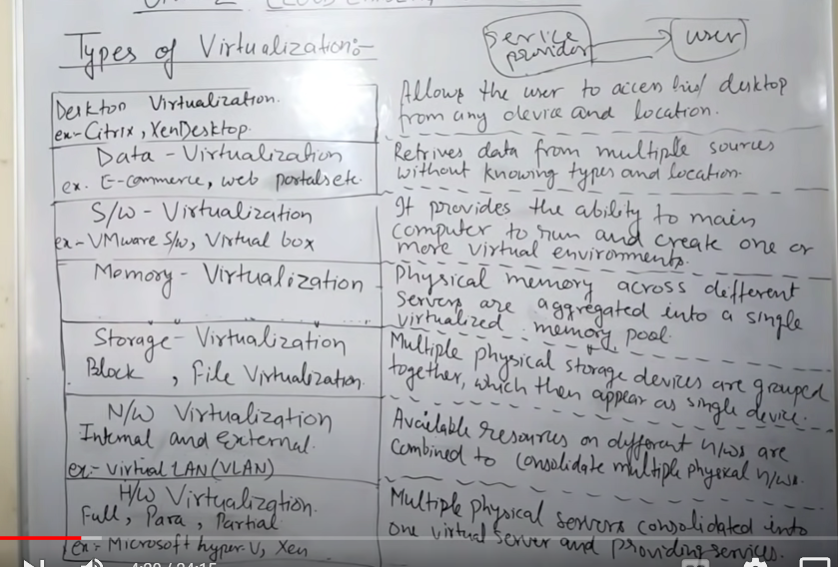 Types of Virtualization:-
Service provider
user
Desktop Virtualization.
ex-Citrix, XenDesktop.
Allows the user to access his/ desktop
from any device and location.
Data - Virtualization
ex. E-commerce, web portals etc.
Retrives data from multiple sources
without knowing types and location.
S/w - Virtualization
ex-VMware S/w, Virtual box
It provides the ability to main
computer to run and create one or
more virtual environments.
Memory - Virtualization
Physical memory across different
servers are aggregated into a single
virtualized memory pool.
Storage - Virtualization
Block, File Virtualization.
Multiple physical storage devices are grouped
together, which then appear as single device.
N/W Virtualization
Internal and External.
ex:- Virtual LAN (VLAN)
Available resources on different n/ws are
combined to consolidate multiple physical n/ws.
H/W Virtualization.
Full, Para, Partial
ex:- Microsoft hyper-V, Xen
Multiple physical servers consolidated into
one virtual server and providing services.